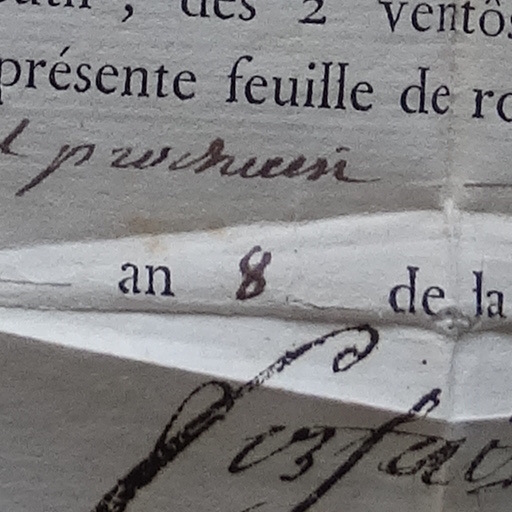 , des 2 ventôs
présente feuille de ro
prochain
an 8 de la